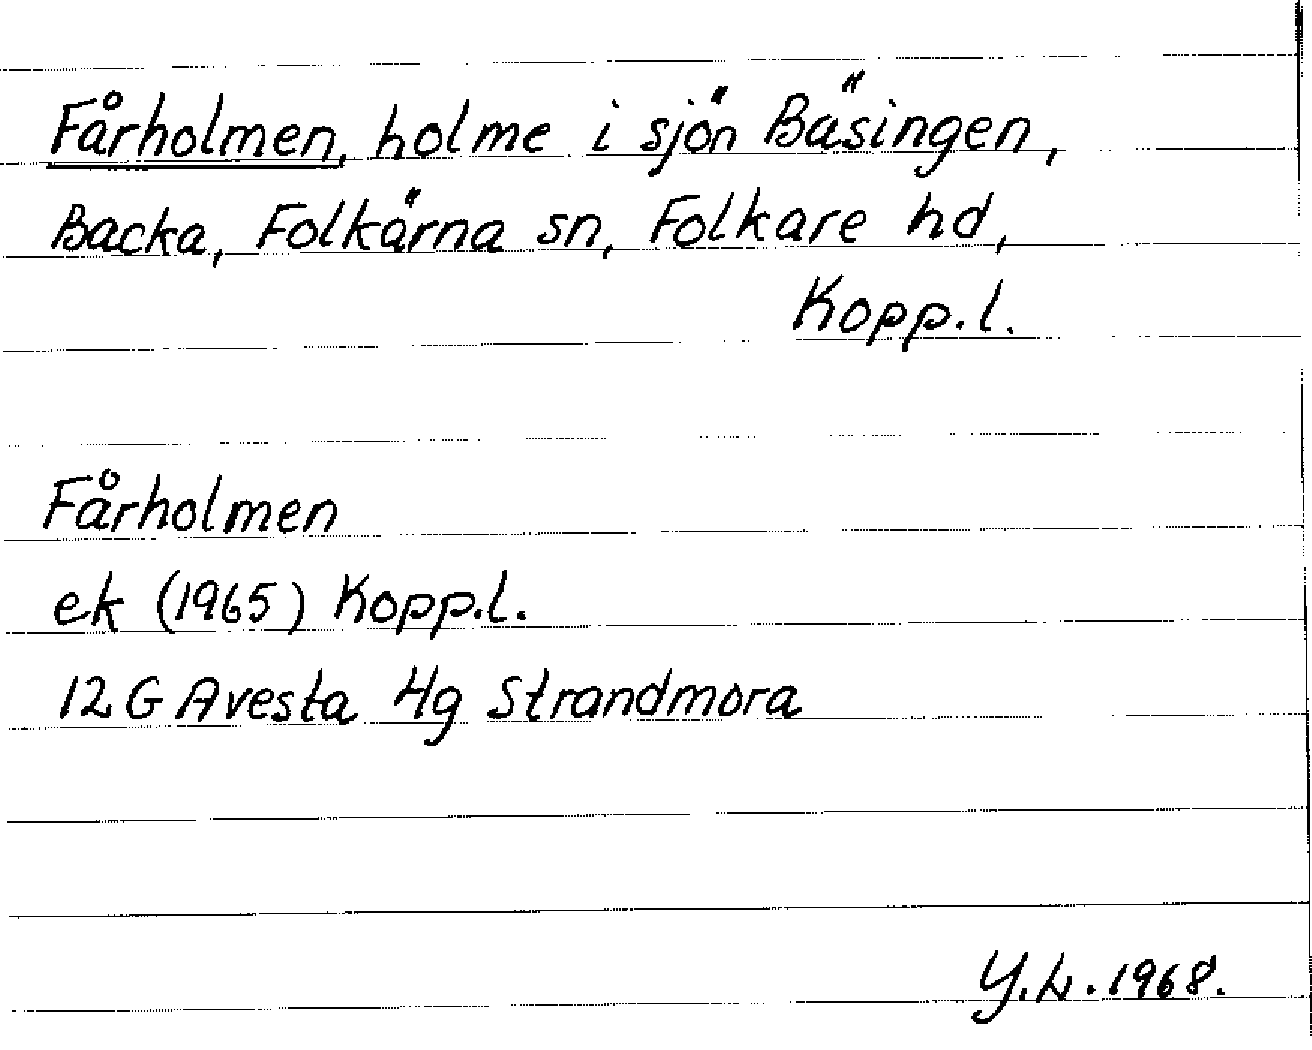 Fårholmen, holme i sjön Bäsingen,
Backa, Folkärna sn, Folkare hd,
Kopp.l.
Fårholmen
ek (1965) Kopp.l.
12 G Avesta 4g Strandmora
Y.L. 1968.